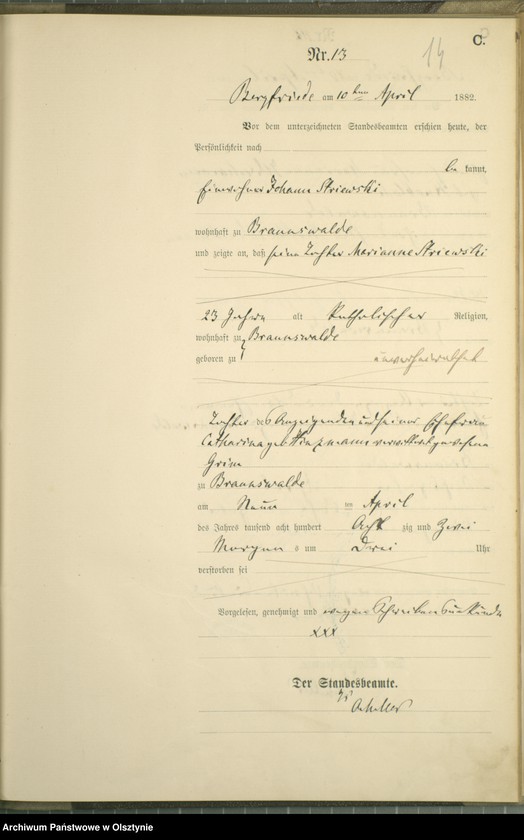 C.
14
Nr. 13
Bergfriede am 10ten April 1882.
Vor dem unterzeichneten Standesbeamten erschien heute, der
Persönlichkeit nach
be kannt,
Einwohner Johann Striewski
wohnhaft zu Braunswalde
und zeigte an, daß seine Tochter Marianne Striewski
23 Jahre alt katholischer Religion,
wohnhaft zu Braunswalde
geboren zu unverheirathet
Tochter des Anzeigenden und seiner Ehefrau
Catharina geb. verwittwet gewesene
zu Braunswalde
am Neun ten April
des Jahres tausend acht hundert Acht zig und Zwei
Morgen s um Drei Uhr
verstorben sei
Vorgelesen, genehmigt und wegen Schreibensunkunde
xxx
Der Standesbeamte.